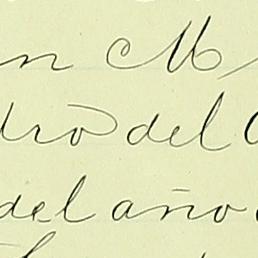 n M
dro del
del año